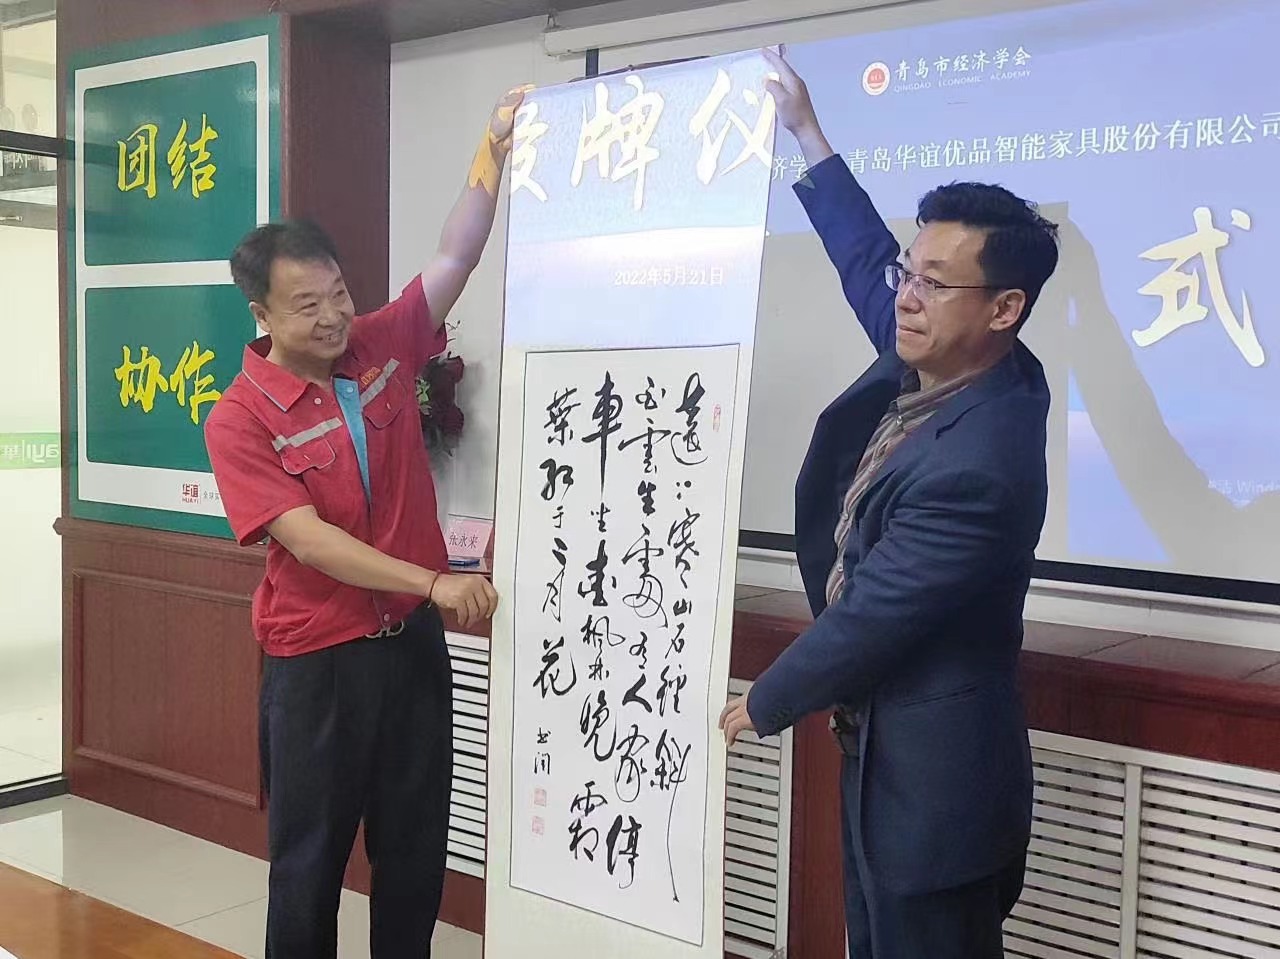 团结
协作
华谊
HUAYI
青岛市经济学会
QINGDAO ECONOMIC ACADEMY
济学 青岛华谊优品智能家具股份有限公司
授牌仪式
2022年5月21日
遠上寒山石徑斜
白雲生處有人家停
車坐愛枫林晚霜
葉红于二月花
张永来